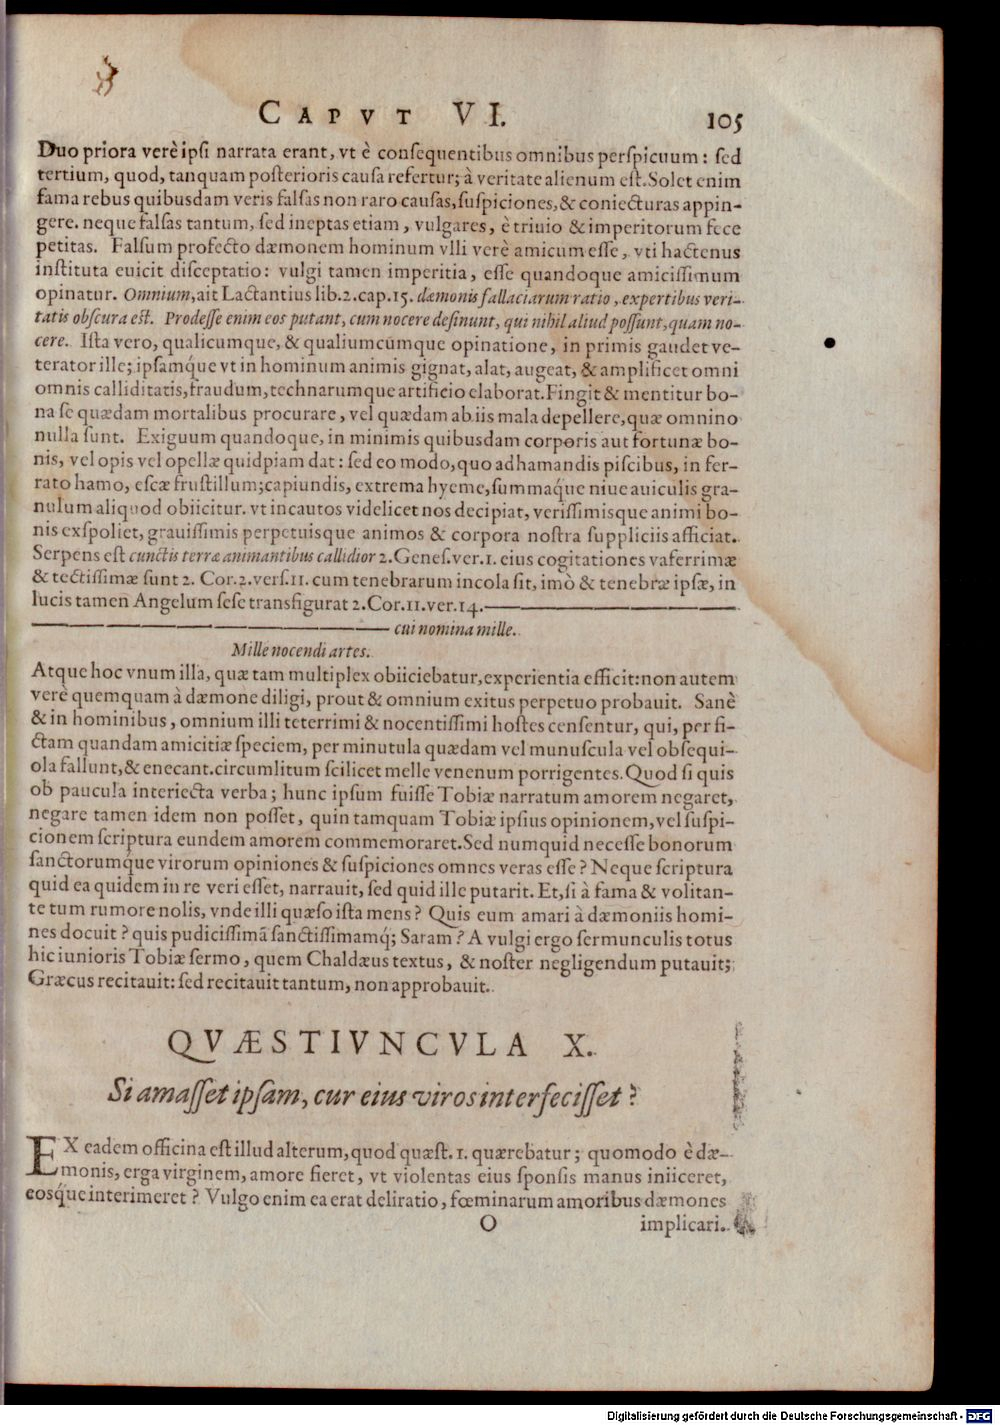 CAPVT VI. 105
Duo priora verè ipsi narrata erant, vt è consequentibus omnibus perspicuum: sed
tertium, quod, tanquam posterioris causa refertur; à veritate alienum est. Solet enim
fama rebus quibusdam veris falsas non raro causas, suspiciones, & coniecturas appin-
gere. neque falsas tantum, sed ineptas etiam, vulgares, è triuio & imperitorum fece
petitas. Falsum profecto dæmonem hominum vlli verè amicum esse, vti hactenus
instituta euicit disceptatio: vulgi tamen imperitia, esse quandoque amicissimum
opinatur. Omnium, ait Lactantius lib. 2. cap. 15. dæmonis fallaciarum ratio, expertibus veri-
tatis obscura est. Prodesse enim eos putant, cum nocere desinunt, qui nihil aliud possunt, quam no-
cere. Ista vero, qualicumque, & qualiumcumque opinatione, in primis gaudet ve-
terator ille; ipsamq́ue vt in hominum animis gignat, alat, augeat, & amplificet omni
omnis calliditatis, fraudum, technarumque artificio elaborat. Fingit & mentitur bo-
na se quædam mortalibus procurare, vel quædam ab iis mala depellere, quæ omnino
nulla sunt. Exiguum quandoque, in minimis quibusdam corporis aut fortunæ bo-
nis, vel opis vel opellæ quidpiam dat: sed eo modo, quo ad hamandis piscibus, in fer-
rato hamo, escæ frustillum; capiundis, extrema hyeme, summaq́ue niue auiculis gra-
nulum aliquod obiicitur. vt incautos videlicet nos decipiat, verissimisque animi bo-
nis exspoliet, grauissimis perpetuisque animos & corpora nostra suppliciis afficiat.
Serpens est cunctis terræ animantibus callidior 2. Genes. ver. 1. eius cogitationes vaferrimæ
& tectissimæ sunt 2. Cor. 2. vers. 11. cum tenebrarum incola sit, imò & tenebræ ipsæ, in
lucis tamen Angelum sese transfigurat 2. Cor. 11. ver. 14.
cui nomina mille.
Mille nocendi artes.
Atque hoc vnum illa, quæ tam multiplex obiiciebatur, experientia efficit: non autem
verè quemquam à dæmone diligi, prout & omnium exitus perpetuo probauit. Sanè
& in hominibus, omnium illi teterrimi & nocentissimi hostes censentur, qui, per fi-
ctam quandam amicitiæ speciem, per minutula quædam vel munuscula vel obsequi-
ola fallunt, & enecant. circumlitum scilicet melle venenum porrigentes. Quod si quis
ob paucula interiecta verba; hunc ipsum fuisse Tobiæ narratum amorem negaret,
negare tamen idem non posset, quin tamquam Tobiæ ipsius opinionem, vel suspi-
cionem scriptura eundem amorem commemoraret. Sed numquid necesse bonorum
sanctorumq́ue virorum opiniones & suspiciones omnes veras esse? Neque scriptura
quid ea quidem in re veri esset, narrauit, sed quid ille putarit. Et, si à fama & volitan-
te tum rumore nolis, vnde illi quæso ista mens? Quis eum amari à dæmoniis homi-
nes docuit? quis pudicissimã sanctissimamq́; Saram? A vulgi ergo sermunculis totus
hic iunioris Tobiæ sermo, quem Chaldæus textus, & noster negligendum putauit;
Græcus recitauit: sed recitauit tantum, non approbauit.
QVÆSTIVNCVLA X.
Si amasset ipsam, cur eius viros interfecisset?
EX eadem officina est illud alterum, quod quæst. 1. quærebatur; quomodo è dæ-
monis, erga virginem, amore fieret, vt violentas eius sponsis manus iniiceret,
eosq́ue interimeret? Vulgo enim ea erat deliratio, fœminarum amoribus dæmones
O implicari.
Digitalisierung gefördert durch die Deutsche Forschungsgemeinschaft - DFG